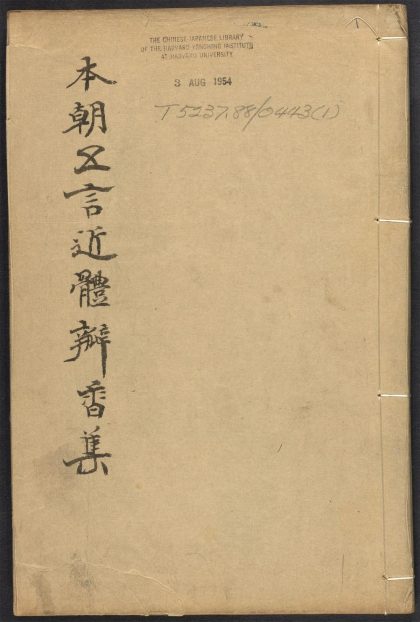 THE CHINESE-JAPANESE LIBRARY
OF THE HARVARD-YENCHING INSTITUTE
AT HARVARD UNIVERSITY
3 AUG 1954
T5237.88/0443(1)
本朝五言近體瓣香集